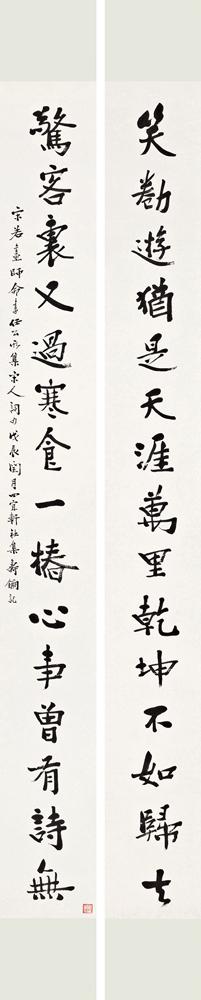 笑勸遊猶是天涯萬里乾坤不如歸去
驚客裏又過寒食一樁心事曾有詩無
宗若畫師命書任公所集宋人詞句戊辰閏月四宜軒社集壽鈵記